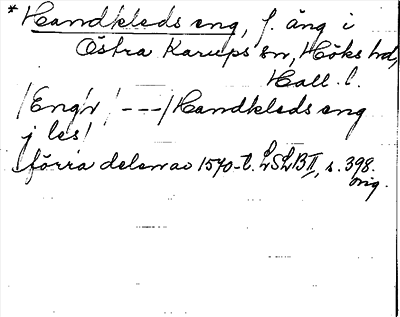 *Handkleds eng, f. äng i
Östra Karups sn, Höks hd,
Hall. l.
/Engr / ---/ Handkleds eng
j les/
förra delen av 1570-t. LSLB II, s. 398.
orig.